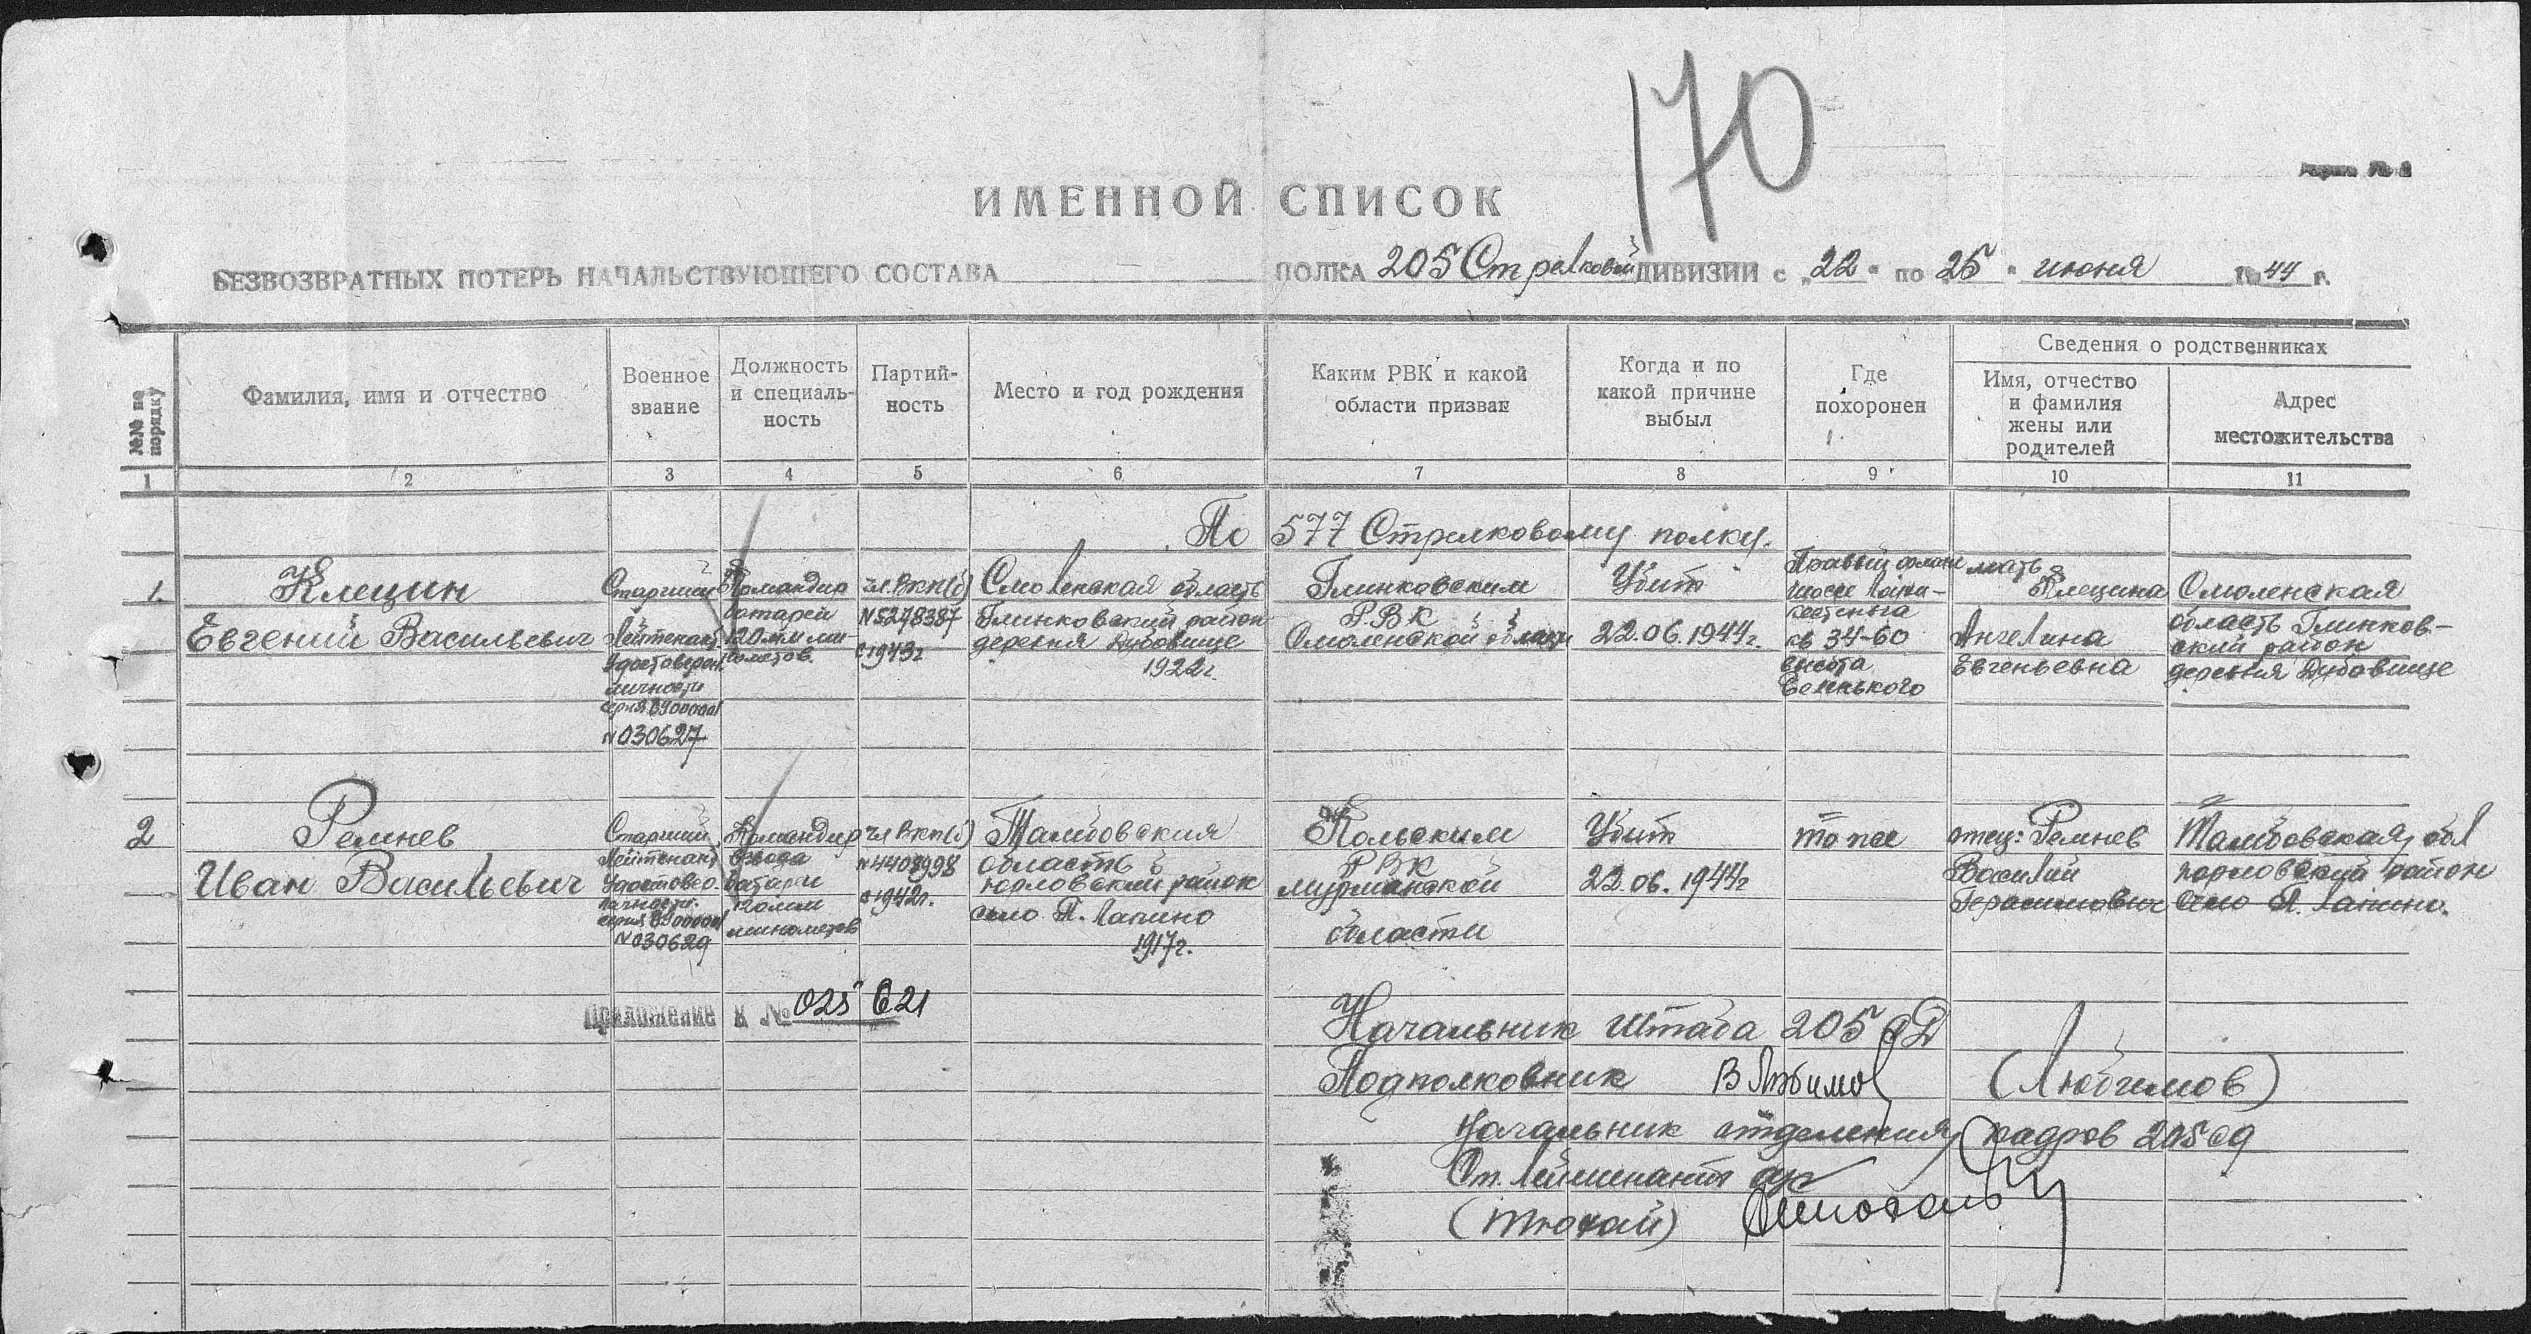 170
Форма № 2
ИМЕННОЙ СПИСОК
БЕЗВОЗВРАТНЫХ ПОТЕРЬ НАЧАЛЬСТВУЮЩЕГО СОСТАВА ПОЛКА 205 Стрелковой ДИВИЗИИ с „22" по 25" июня 1944 г.
№№ по порядку
Фамилия, имя и отчество
Военное
звание
Должность
и специаль-
ность
Партий-
ность
Место и год рождения
Каким РВК и какой
области призван
Когда и по
какой причине
выбыл
Где
похоронен
Сведения о родственниках
Имя, отчество
и фамилия
жены или
родителей
Адрес
местожительства
1 2 3 4 5 6 7 8 9 10 11
По 577 Стрелковому полку.
1.
Клецин
Евгений Васильевич
Старший
Лейтенант
Удостоверен.
личности
серия
N 030627
Командир
батареи
120 мм ми-
нометов.
чл. ВКП(б)
N 5278387
с 1943г
Смоленская область
Глинковский район
деревня Дубовище
1922г.
Глинковским
Р.В.К
Смоленской области
Убит
22.06.1944г.
Правый фланг
шоссе
кв 34-60
высота
мать
Клецина
Ангелина
Евгеньевна
Смоленская
область Глинков-
ский район
деревня Дубовище
2
Ремнев
Иван Васильевич
Старший
Лейтенант
Удостовер.
личности.
серия
N 030629
Командир
взвода
батареи
120 мм
минометов
чл ВКП(б)
N 4408998
с 1942г.
Тамбовская
область
район
село П. Лапино
1917г.
Кольским
РВК
мурманской
области
Убит
22.06.1944г
то же
отец: Ремнев
Василий
Герасимович
Тамбовская обл
район
Село П. Лапино.
Приложение к № 025621
Начальник Штаба 205 СД
Подполковник В Любимов (Любимов)
Начальник отделения кадров 205 сд
Ст. Лейтенант а/с